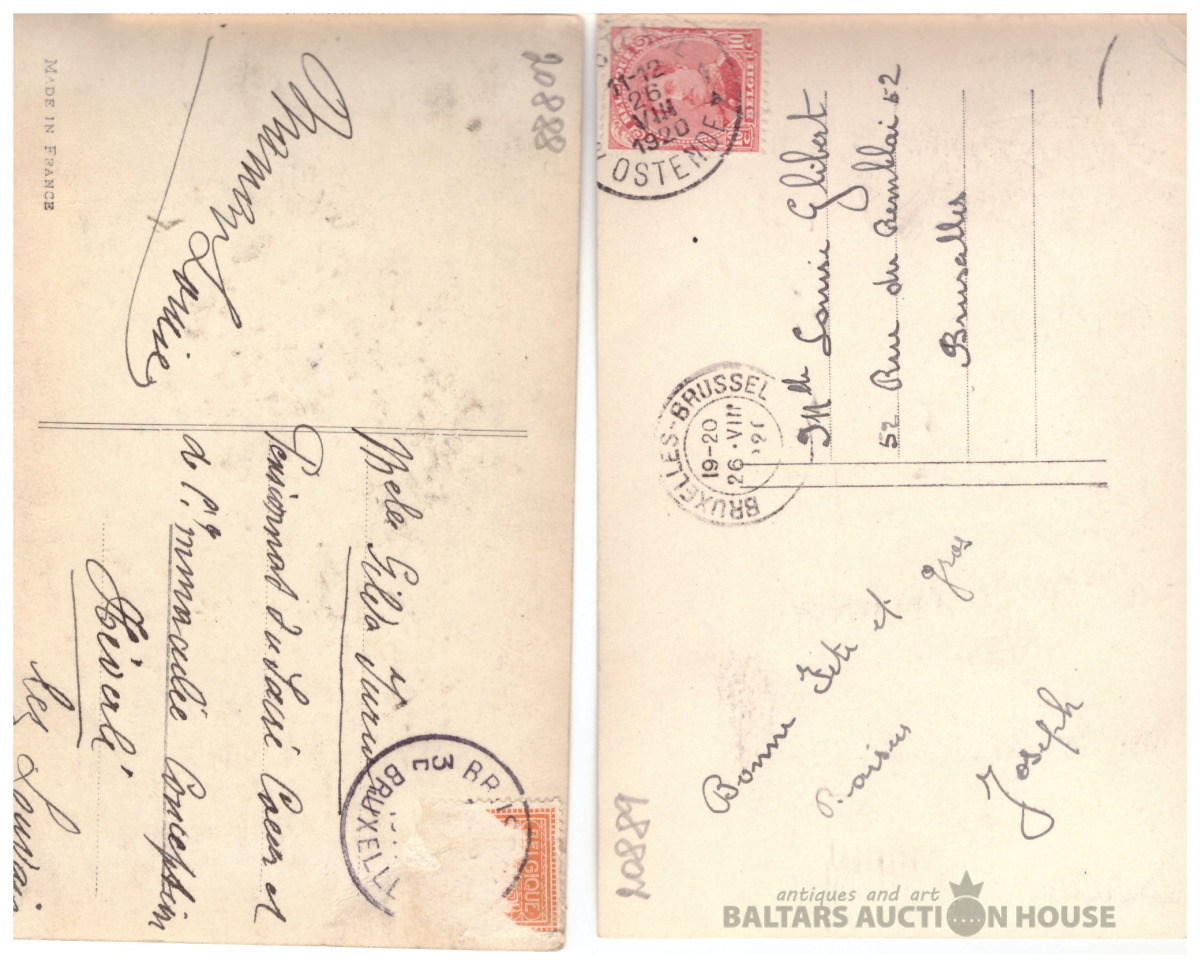 MADE IN FRANCE
20888
Louise
Melle Gilda
Pensionnat du Sacré Coeur et
de l'Immaculée Conception
Héverlé
lez Louvain
BRUXELL
BELGIQUE
BELGIE
10
11-12
26
VIII
1920
OSTENDE
Mlle Louise Glibert
52 Rue du Remblai 52
Bruxelles
BRUXELLES-BRUSSEL
19-20
26 VIII
Bonne Fête et gros
Baisers
Joseph
20889
antiques and art
BALTARS AUCTION HOUSE